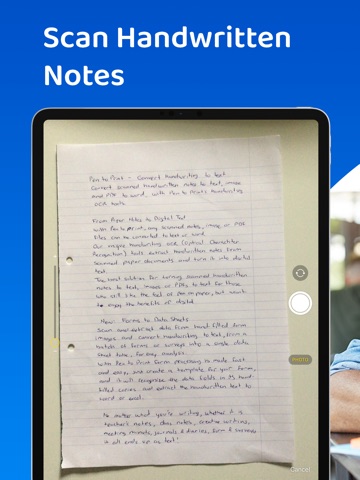 Scan Handwritten
Notes
Pen to Print - Convert handwriting to text.
Convert scanned handwritten notes to text, image
and PDF to word, with Pen to Print's handwriting
OCR tools.
From Paper Notes to Digital Text
With Pen to Print, any scanned notes, image or PDF
files can be converted to text or word.
Our unique handwriting OCR (Optical Character
Recognition) tools extract handwritten notes from
scanned paper documents and turn it into digital
text.
The ideal solution for turning scanned handwritten
notes to text, images or PDFs to text for those
who still like the feel of pen on paper, but want
to enjoy the benefits of digital.
New: Forms to Data Sheets
Scan and extract data from hand filled form
images and convert handwriting to text, from a
bunch of forms or surveys into a single data
sheet table, for easy analysis.
With Pen to Print form processing is made fast
and easy, Just create a template for your form,
and it will recognise the data fields in its hand-
filled copies and extract the handwritten text to
word or excel.
No matter what you're writing, whether it is
teacher's notes, class notes, creative writing,
meeting minutes, journals & diaries, form & surveys
it all ends up as text!
PHOTO
Cancel